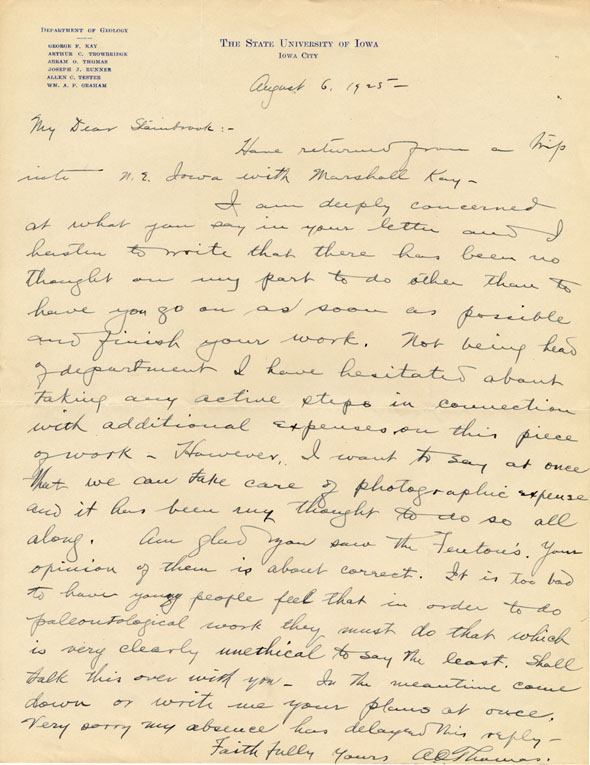 DEPARTMENT OF GEOLOGY
GEORGE F. KAY
ARTHUR C. TROWBRIDGE
ABRAM O. THOMAS
JOSEPH J. RUNNER
ALLEN C. TESTER
WM. A. P. GRAHAM
THE STATE UNIVERSITY OF IOWA
IOWA CITY
August 6, 1925 -
My Dear Stainbrook:-
Have returned from a trip
into N.E. Iowa with Marshall Kay -
I am deeply concerned
at what you say in your letter and I
hasten to write that there has been no
thought on my part to do other than to
have you go on as soon as possible
and finish your work. Not being head
of department I have hesitated about
taking any active steps in connection
with additional expenses on this piece
of work - However, I want to say at once
that we can take care of photographic expense
and it has been my thought to do so all
along. Am glad you saw the Fenton's. Your
opinion of them is about correct. It is too bad
to have young people feel that in order to do
paleontological work they must do that which
is very clearly unethical to say the least. Shall
talk this over with you - In the meantime come
down or write me your plans at once.
Very sorry my absence has delayed this reply -
Faithfully yours AOThomas.